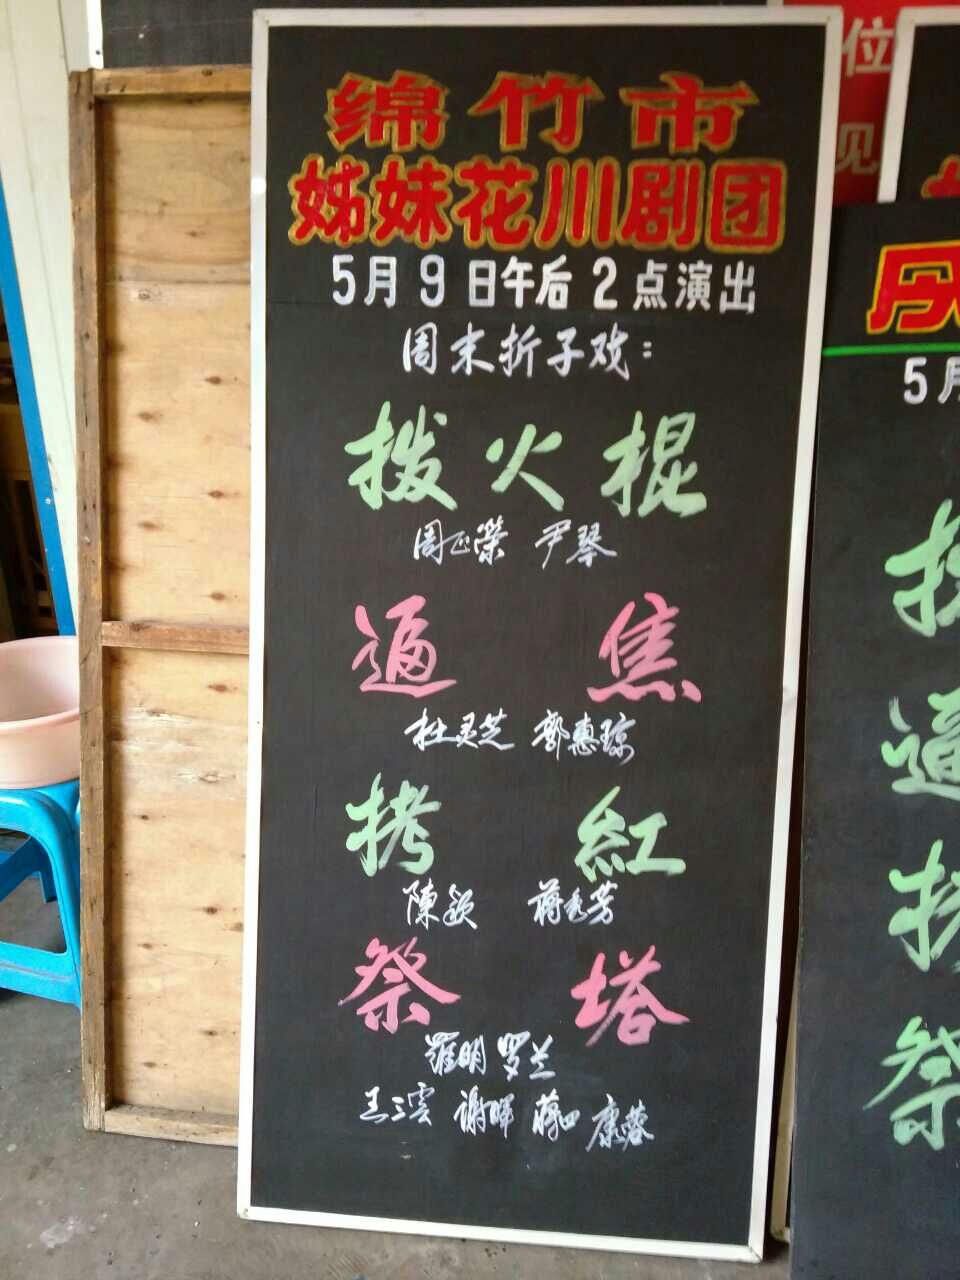 绵竹市
姊妹花川剧团
5月9日午后2点演出
周末折子戏：
拨火棍
周正荣 尹琴
逼焦
杜灵芝 郭惠琼
拷紅
陳颖 蒋秀芳
祭塔
羅明 罗兰
王三雲 谢晖 蒋四 康蓉
位
见
5月
逼
祭